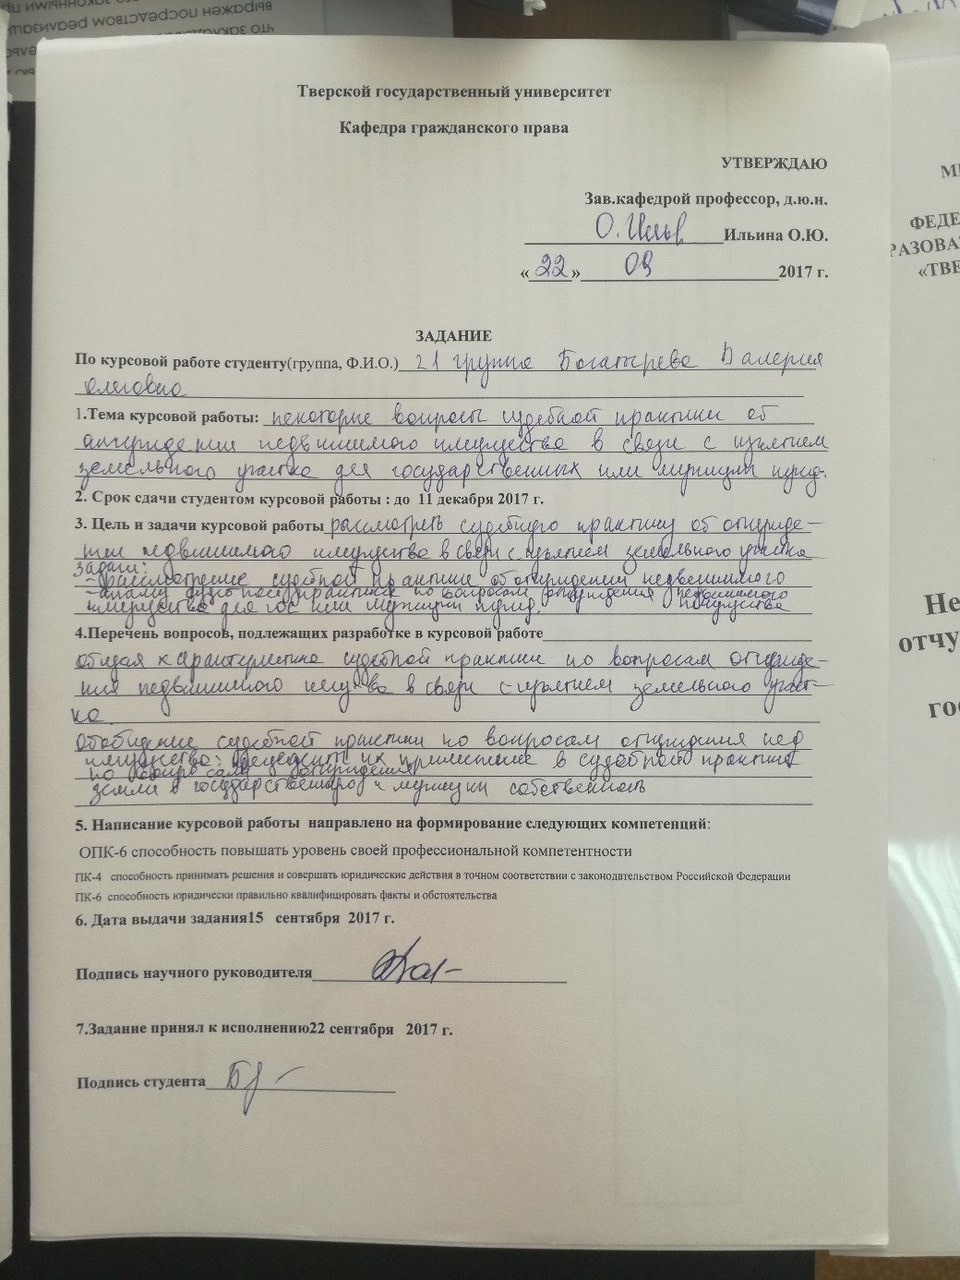 Тверской государственный университет
Кафедра гражданского права
УТВЕРЖДАЮ
Зав.кафедрой профессор, д.ю.н.
Ильина О.Ю.
«22» 09 2017 г.
ЗАДАНИЕ
По курсовой работе студенту(группа, Ф.И.О.) 21 группа Богатырева Валерия
Олеговна
1.Тема курсовой работы: некоторые вопросы судебной практики об
отчуждении недвижимого имущества в связи с изъятием
земельного участка для государственных или муницип нужд.
2. Срок сдачи студентом курсовой работы : до 11 декабря 2017 г.
3. Цель и задачи курсовой работы рассмотреть судебную практику об отчужде-
нии недвижимого имущества в связи с изъятием земельного участка
Задачи:
- рассмотрение судебной практики об отчуждении недвижимого
имущества для гос или муницип нужд.
- анализ практики по вопросам отчуждения недвижимого имущества
4.Перечень вопросов, подлежащих разработке в курсовой работе
общая характеристика судебной практики по вопросам отчужде-
ния недвижимого имущ-ва в связи с изъятием земельного участ-
ка
Обобщение судебной практики по вопросам отчуждения нед
имущества: их применение в судебной практике
по вопросам отчуждения
земли в государственную и муницип собственность
5. Написание курсовой работы направлено на формирование следующих компетенций:
ОПК-6 способность повышать уровень своей профессиональной компетентности
ПК-4 способность принимать решения и совершать юридические действия в точном соответствии с законодательством Российской Федерации
ПК-6 способность юридически правильно квалифицировать факты и обстоятельства
6. Дата выдачи задания15 сентября 2017 г.
Подпись научного руководителя
7.Задание принял к исполнению22 сентября 2017 г.
Подпись студента
МИ
ФЕДЕ
РАЗОВА
«ТВЕ
Не
отчу
гос